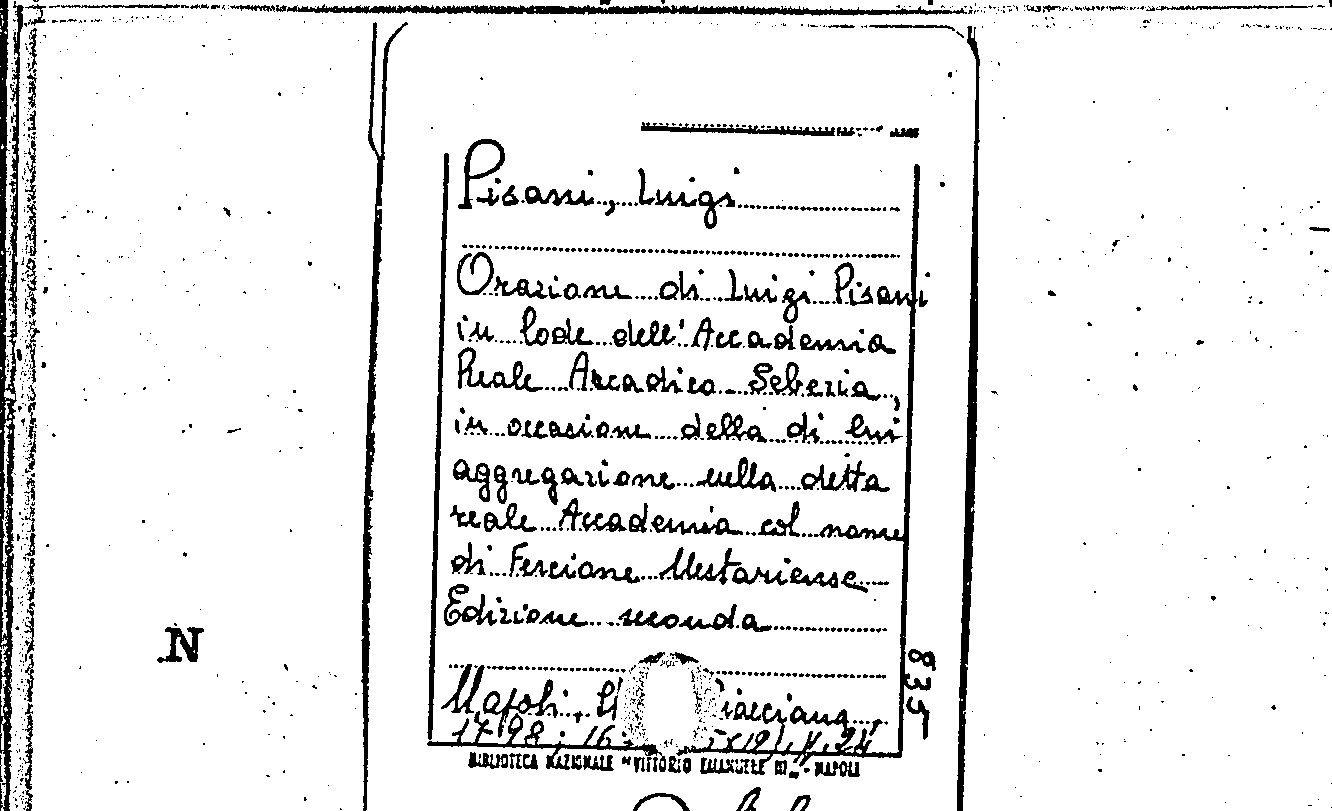 Pisani, Luigi
Orazione di Luigi Pisani
in lode dell'Accademia
Reale Arcadico Sebezia,
in occasione della di lui
aggregazione nella detta
reale Accademia col nome
di
Edizione seconda
N
835
Napoli,
1798; 16
BIBLIOTECA NAZIONALE "VITTORIO EMANUELE III" - NAPOLI